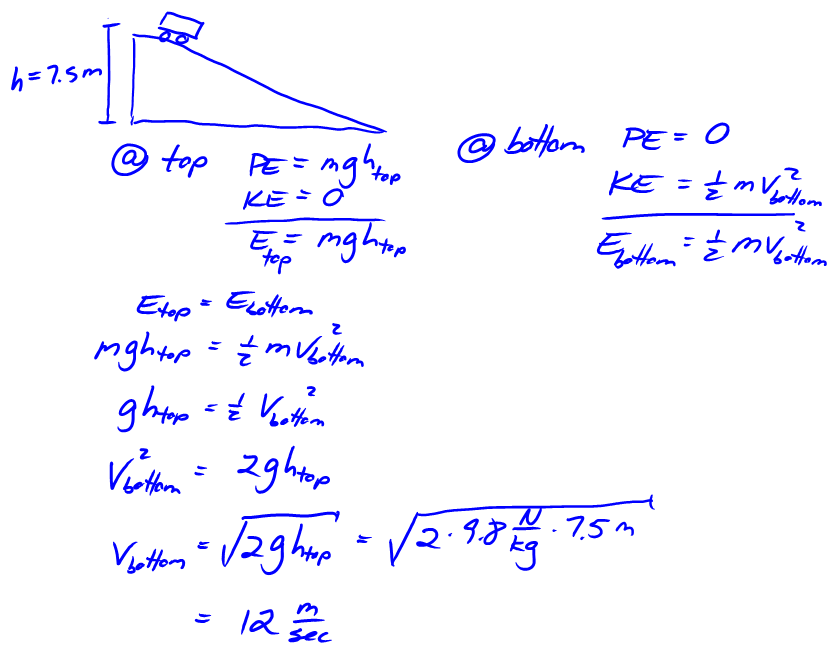 h = 7.5 m
@ top PE = mgh_top
KE = 0
E_top = mgh_top
@ bottom PE = 0
KE = 1/2 m V_bottom^2
E_bottom = 1/2 m V_bottom^2
E_top = E_bottom
mgh_top = 1/2 m V_bottom^2
gh_top = 1/2 V_bottom^2
V_bottom^2 = 2gh_top
V_bottom = √(2gh_top) = √(2 · 9.8 N/kg · 7.5 m)
= 12 m/sec